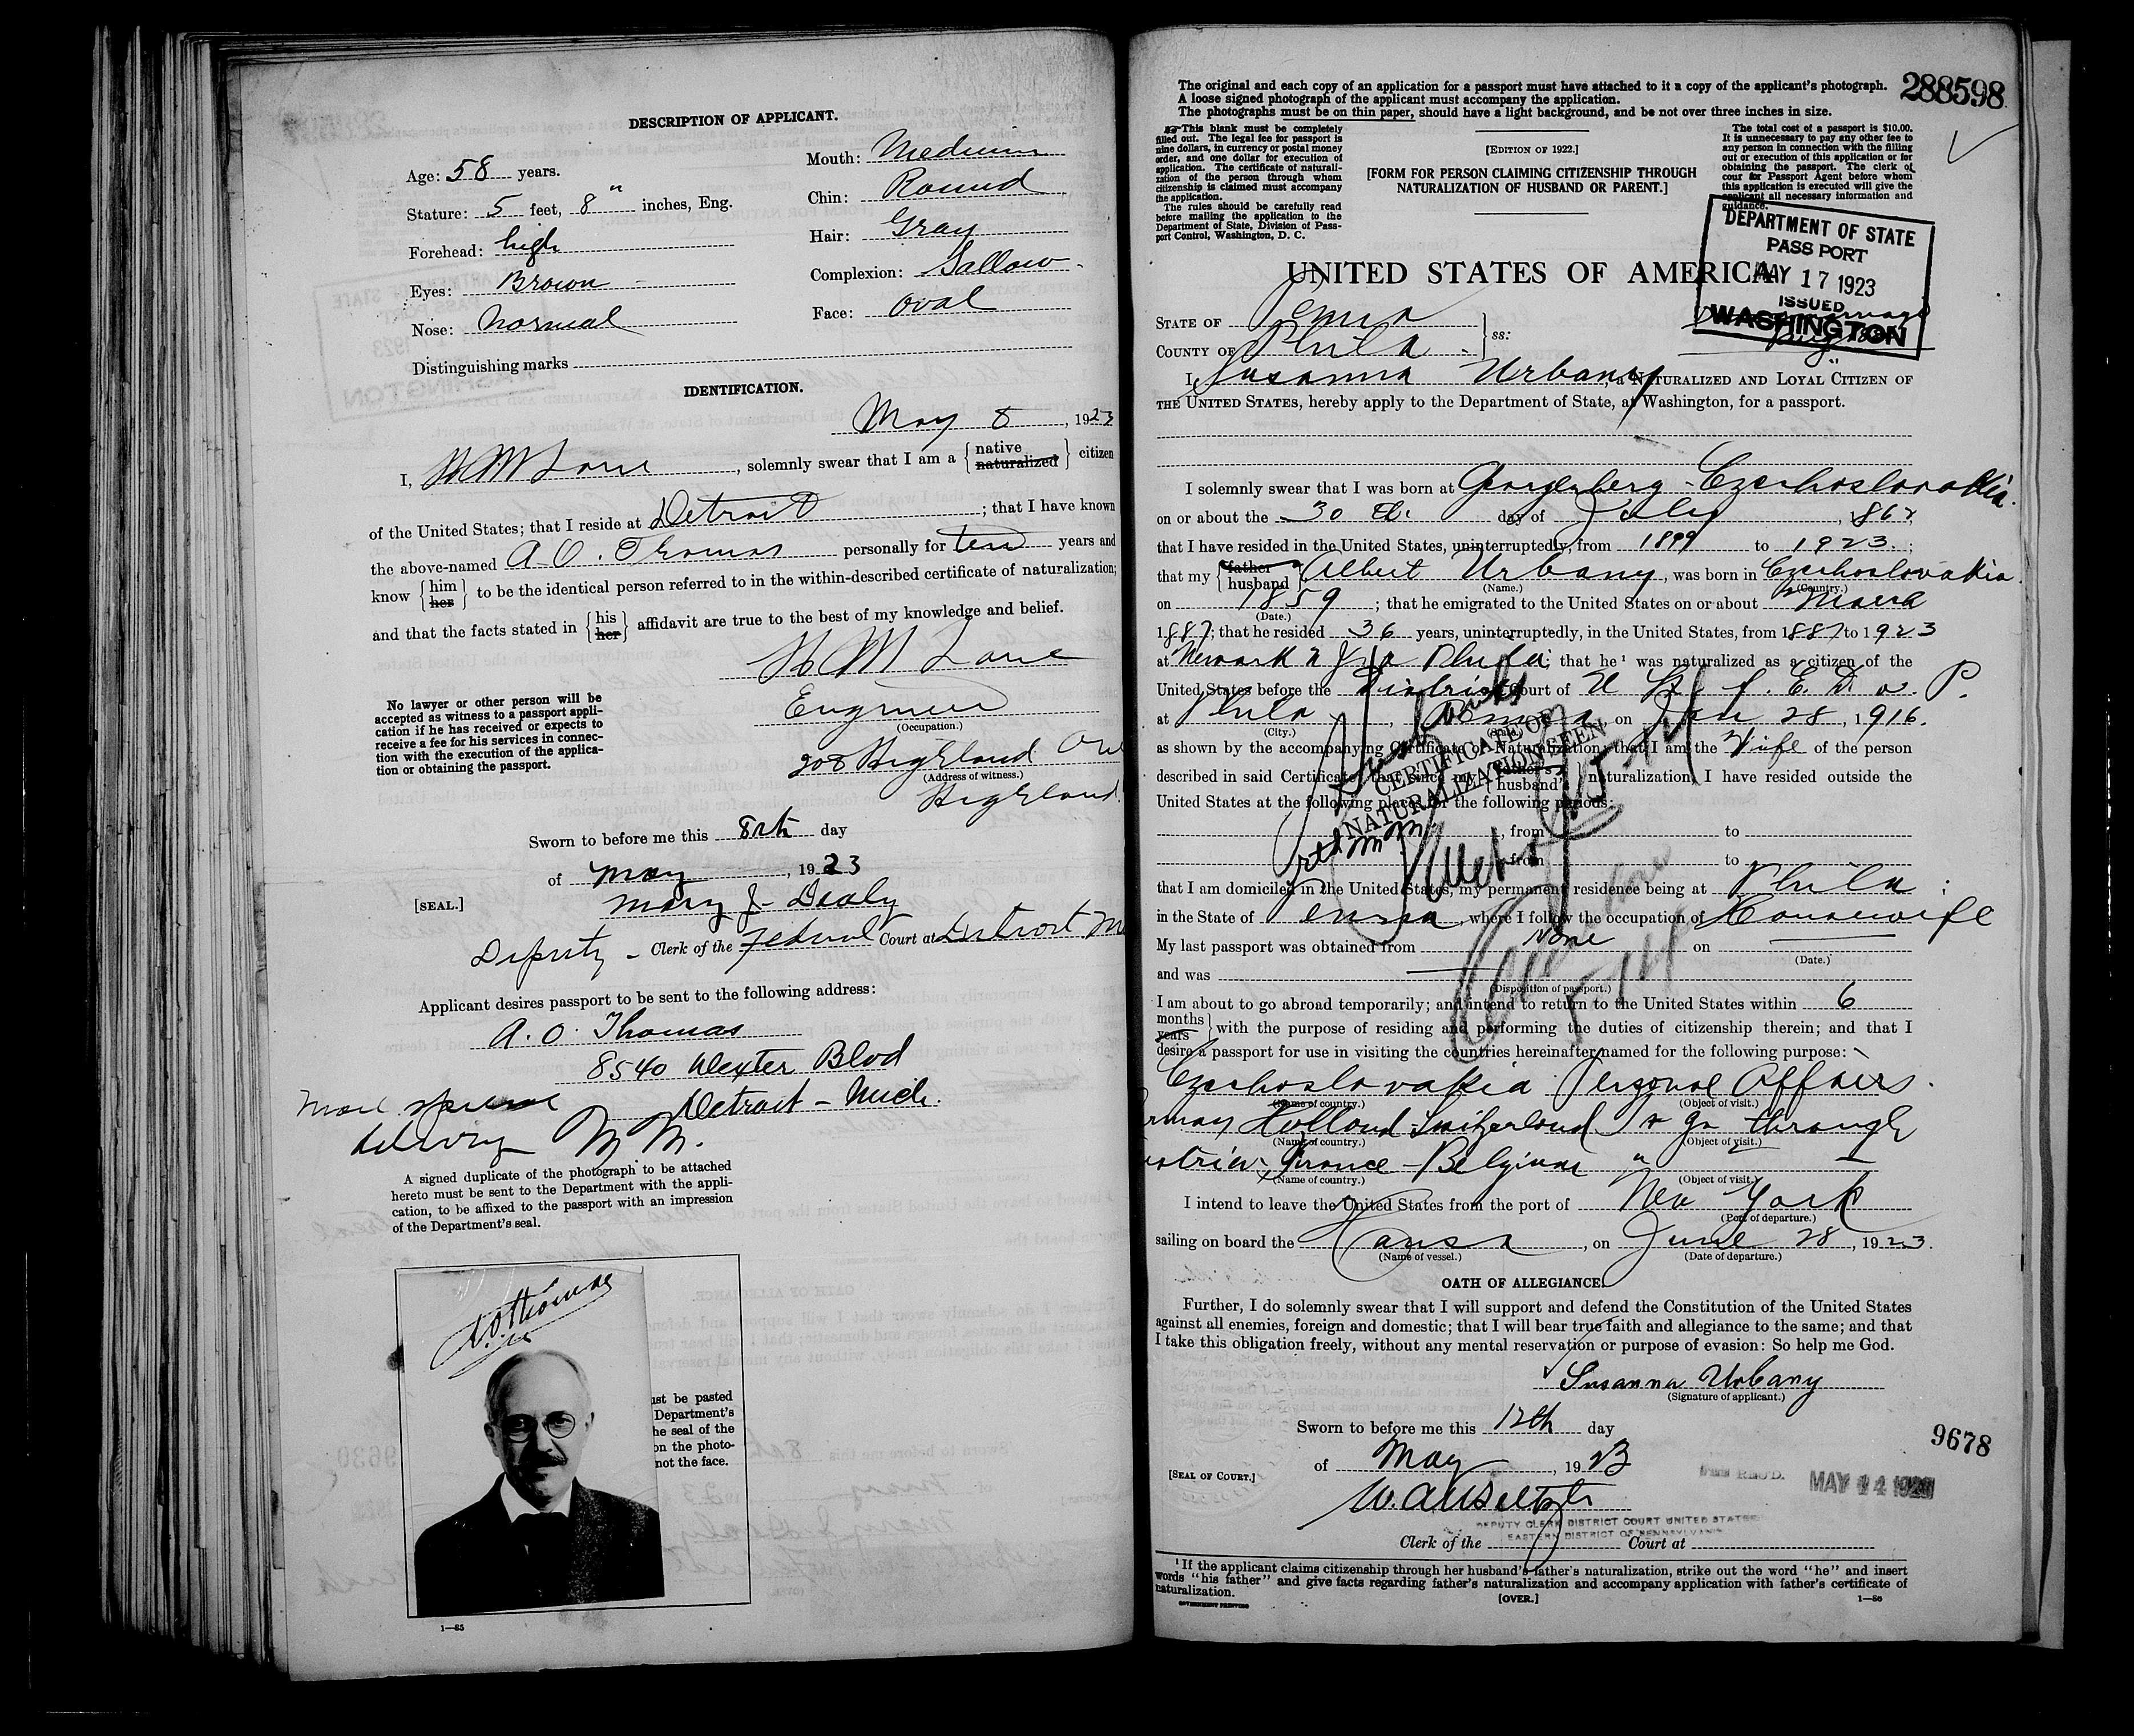 DESCRIPTION OF APPLICANT.
Age: 58 years.
Stature: 5 feet, 8" inches, Eng.
Forehead: high
Eyes: Brown
Nose: normal
Distinguishing marks
Mouth: Medium
Chin: Round
Hair: Gray
Complexion: Sallow
Face: oval
IDENTIFICATION.
May 8, 1923
I, H M Lane, solemnly swear that I am a { native naturalized } citizen
of the United States; that I reside at Detroit; that I have known
the above-named A. O. Thomas personally for ten years and
know { him her } to be the identical person referred to in the within-described certificate of naturalization;
and that the facts stated in { his her } affidavit are true to the best of my knowledge and belief.
H M Lane
No lawyer or other person will be
accepted as witness to a passport appli-
cation if he has received or expects to
receive a fee for his services in connec-
tion with the execution of the applica-
tion or obtaining the passport.
Engineer
(Occupation.)
208 Highland Ave
(Address of witness.)
Highland
Sworn to before me this 8th day
of May, 1923
[SEAL.]
Mary J. Dealy
Deputy - Clerk of the Federal Court at Detroit M
Applicant desires passport to be sent to the following address:
A. O. Thomas
8540 Dexter Blvd
Detroit - Mich.
Mail special
delivery M M.
A signed duplicate of the photograph to be attached
hereto must be sent to the Department with the appli-
cation, to be affixed to the passport with an impression
of the Department's seal.
A.O. Thomas
ust be pasted
Department's
he seal of the
on the photo-
not the face.
1—65
The original and each copy of an application for a passport must have attached to it a copy of the applicant's photograph.
A loose signed photograph of the applicant must accompany the application.
The photographs must be on thin paper, should have a light background, and be not over three inches in size.
288598
This blank must be completely
filled out. The legal fee for passport is
nine dollars, in currency or postal money
order, and one dollar for execution of
application. The certificate of naturali-
zation of the person through whom
citizenship is claimed must accompany
the application.
The rules should be carefully read
before mailing the application to the
Department of State, Division of Pass-
port Control, Washington, D. C.
[EDITION OF 1922.]
[FORM FOR PERSON CLAIMING CITIZENSHIP THROUGH
NATURALIZATION OF HUSBAND OR PARENT.]
The total cost of a passport is $10.00.
It is unnecessary to pay any other fee to
any person in connection with the filling
out or execution of this application or for
obtaining the passport. The clerk of
cour or Passport Agent before whom
this application is executed will give the
applicant all necessary information and
guidance.
DEPARTMENT OF STATE
PASS PORT
MAY 17 1923
ISSUED
WASHINGTON
UNITED STATES OF AMERICA
STATE OF Penna
COUNTY OF Phila
ss:
I, Susanna Urbany, a NATURALIZED AND LOYAL CITIZEN OF
THE UNITED STATES, hereby apply to the Department of State, at Washington, for a passport.
I solemnly swear that I was born at Georgenberg - Czechoslovakia.
on or about the 30 th. day of July, 1862
that I have resided in the United States, uninterruptedly, from 1899 to 1923;
that my { father husband } Albert Urbany, was born in Czechoslovakia
(Name.) (Country.)
on 1859; that he emigrated to the United States on or about March
(Date.)
1887; that he resided 36 years, uninterruptedly, in the United States, from 1887 to 1923
at Newark N J & Phila; that he¹ was naturalized as a citizen of the
United States before the District Court of U St. f. E. D. o. P.
at Phila, Penna on Jan 28, 1916.
(City.) (State.)
as shown by the accompanying Certificate of Naturalization; that I am the Wife of the person
described in said Certificate; that since my { father's husband's } naturalization, I have resided outside the
United States at the following places for the following periods:
, from to
, from to
CERTIFICATE OF
NATURALIZATION SEEN
that I am domiciled in the United States, my permanent residence being at Phila;
in the State of Penna, where I follow the occupation of Housewife
My last passport was obtained from None on
(Date.)
and was
(Disposition of passport.)
I am about to go abroad temporarily; and intend to return to the United States within 6
months years } with the purpose of residing and performing the duties of citizenship therein; and that I
desire a passport for use in visiting the countries hereinafter named for the following purpose:
Czechoslovakia Personal Affairs.
(Name of country.) (Object of visit.)
rmany Holland Switzerland to go through
(Name of country.) (Object of visit.)
ustria, France - Belgium "
(Name of country.) (Object of visit.)
I intend to leave the United States from the port of New York
(Port of departure.)
sailing on board the Hansa, on June 28, 1923.
(Name of vessel.) (Date of departure.)
OATH OF ALLEGIANCE.
Further, I do solemnly swear that I will support and defend the Constitution of the United States
against all enemies, foreign and domestic; that I will bear true faith and allegiance to the same; and that
I take this obligation freely, without any mental reservation or purpose of evasion: So help me God.
Susanna Urbany
(Signature of applicant.)
Sworn to before me this 12th day
of May, 1923
9678
[SEAL OF COURT.]
REC'D. MAY 14 1923
DEPUTY CLERK DISTRICT COURT UNITED STATES
EASTERN DISTRICT OF PENNSYLVANIA
Clerk of the Court at
¹ If the applicant claims citizenship through her husband's father's naturalization, strike out the word "he" and insert
words "his father" and give facts regarding father's naturalization and accompany application with father's certificate of
naturalization.
GOVERNMENT PRINTING
[OVER.]
1—86